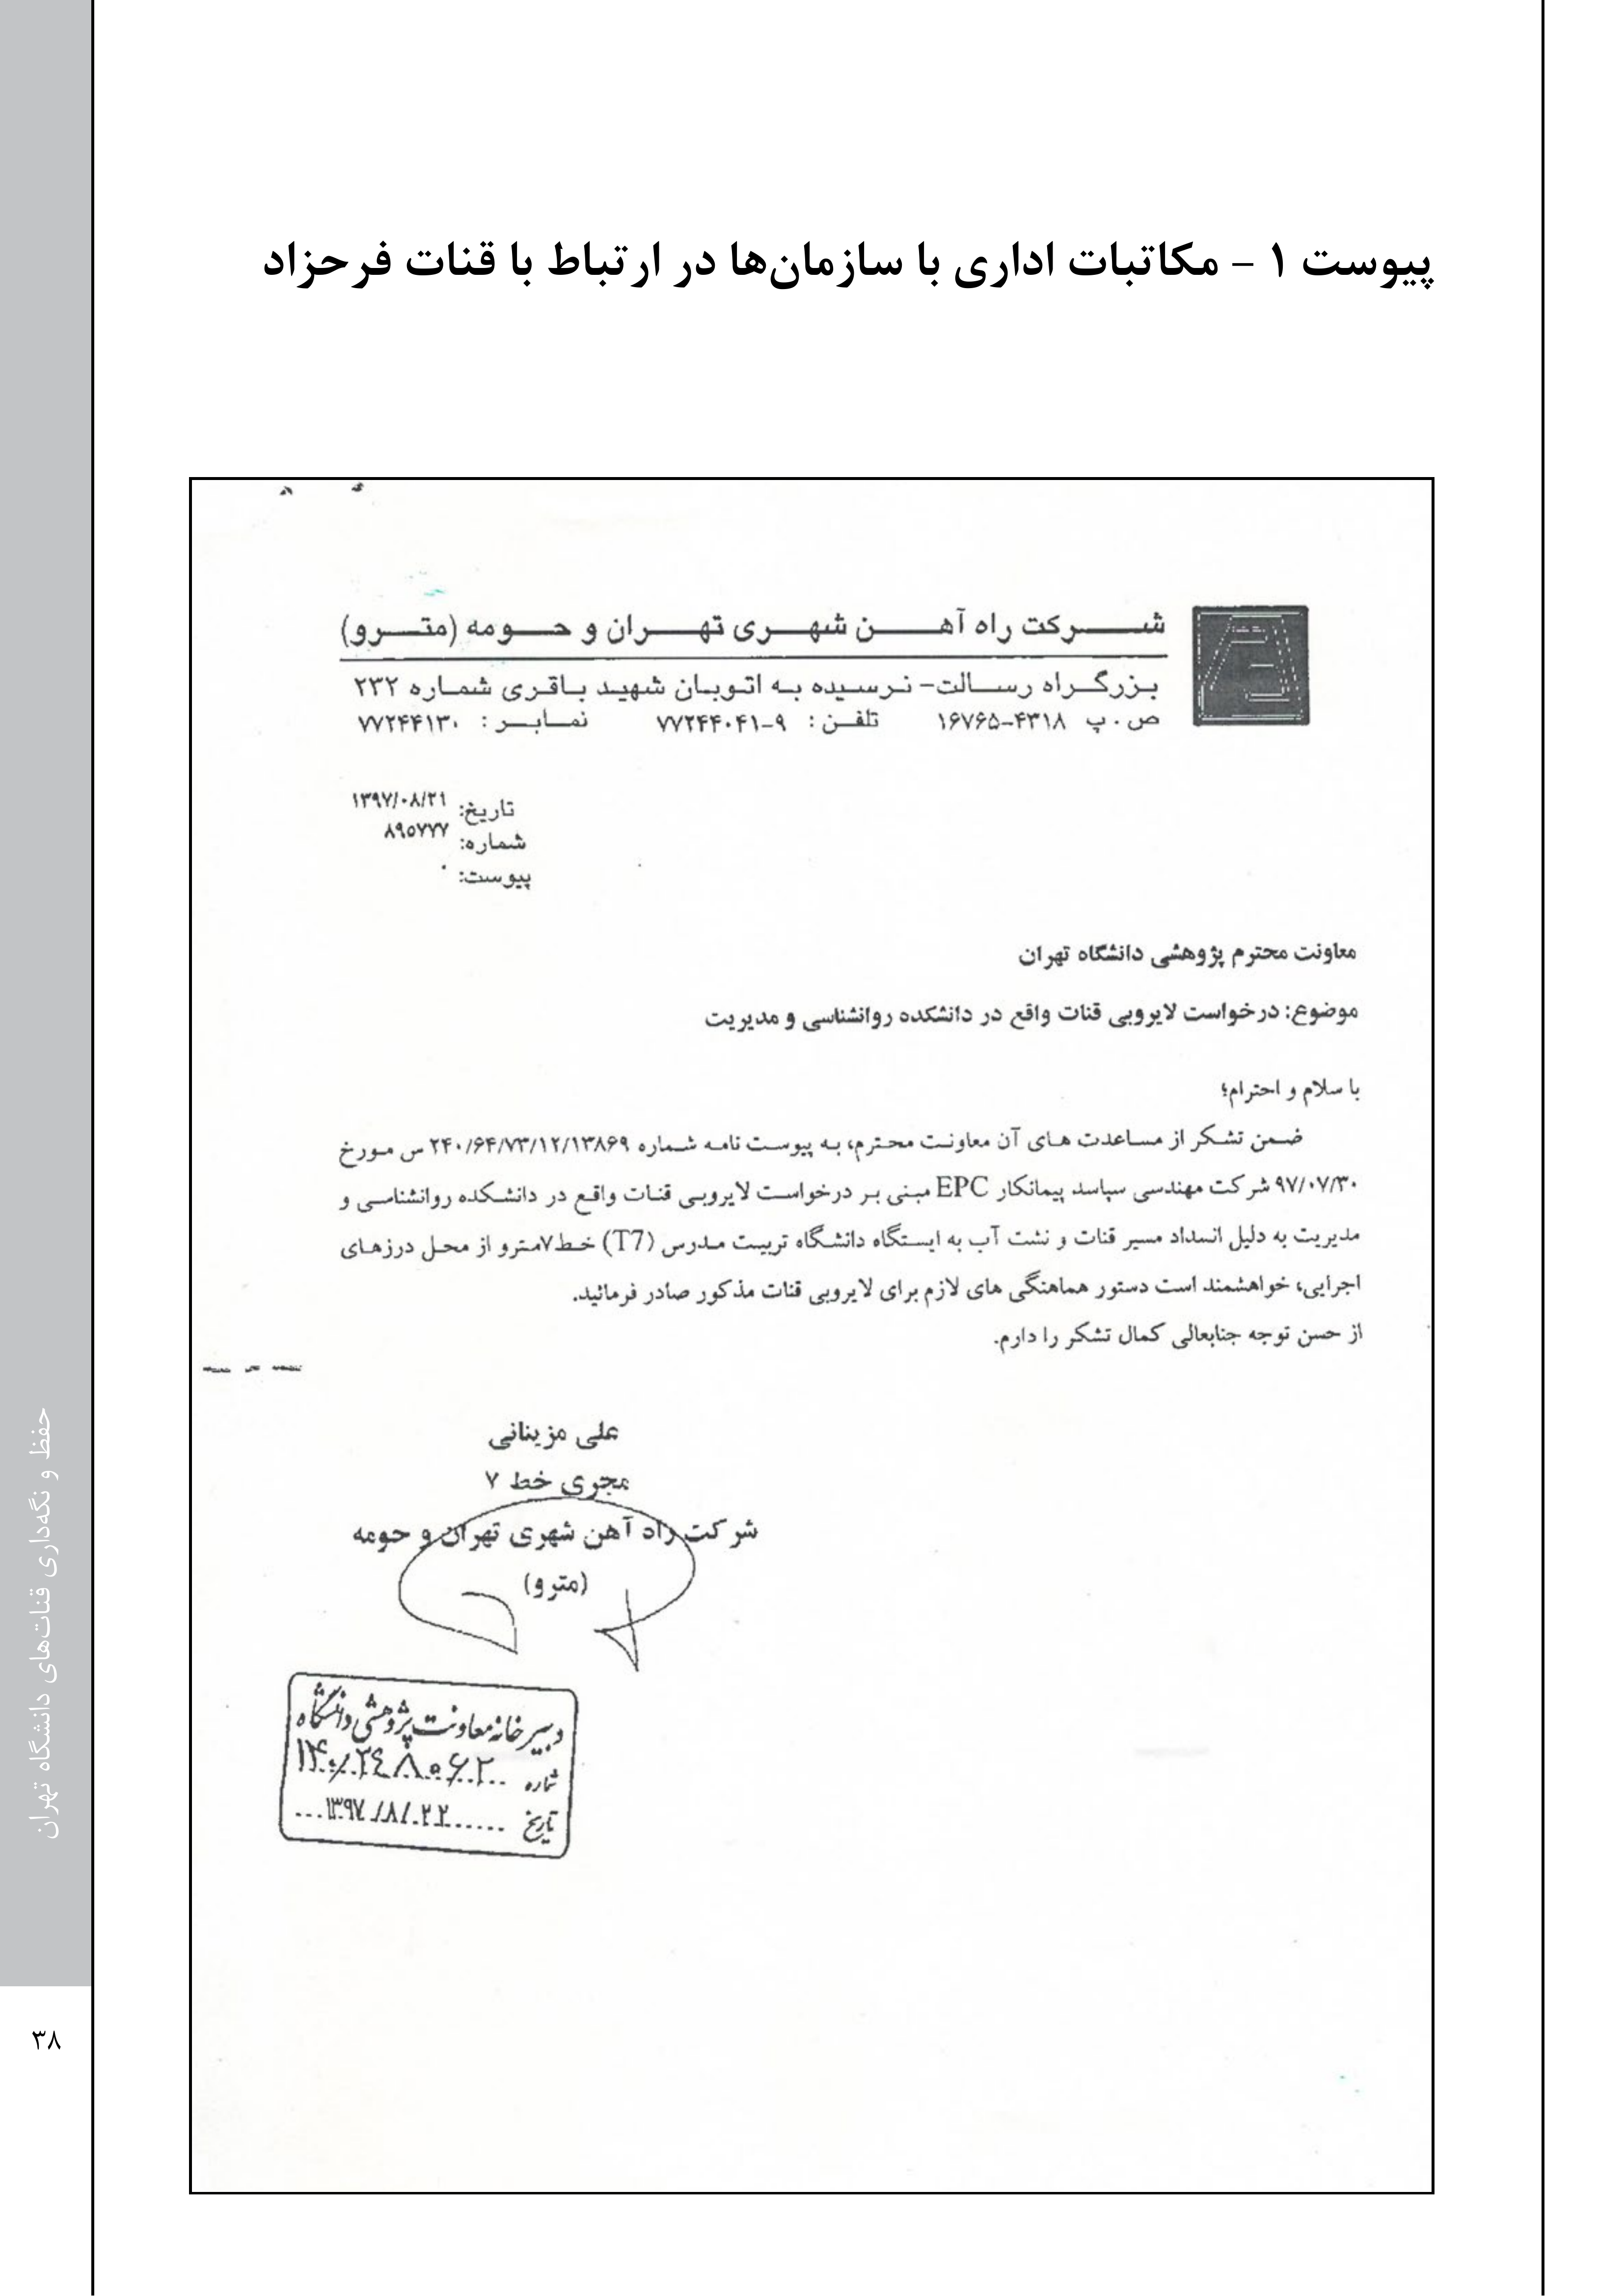 پیوست ۱ - مکاتبات اداری با سازمان‌ها در ارتباط با قنات فرحزاد
شرکت راه آهن شهری تهران و حومه (مترو)
بزرگراه رسالت- نرسیده به اتوبان شهید باقری شماره ۲۳۲
ص . پ ۱۶۷۶۵-۴۳۱۸ تلفن : ۷۷۲۴۴۰۴۱-۹ نمابر : ۷۷۲۴۴۱۳۰
تاریخ: ۱۳۹۷/۰۸/۲۱
شماره: ۸۹۵۷۷۷
پیوست: ۰
معاونت محترم پژوهشی دانشگاه تهران
موضوع: درخواست لایروبی قنات واقع در دانشکده روانشناسی و مدیریت
با سلام و احترام؛
ضمن تشکر از مساعدت های آن معاونت محترم، به پیوست نامه شماره ۲۴۰/۶۴/۷۳/۱۲/۱۳۸۶۹ س مورخ
۹۷/۰۷/۳۰ شرکت مهندسی سپاسد پیمانکار EPC مبنی بر درخواست لایروبی قنات واقع در دانشکده روانشناسی و
مدیریت به دلیل انسداد مسیر قنات و نشت آب به ایستگاه دانشگاه تربیت مدرس (T7) خط۷مترو از محل درزهای
اجرایی، خواهشمند است دستور هماهنگی های لازم برای لایروبی قنات مذکور صادر فرمائید.
از حسن توجه جنابعالی کمال تشکر را دارم.
علی مزینانی
مجری خط ۷
شرکت راه آهن شهری تهران و حومه
(مترو)
دبیرخانه معاونت پژوهشی دانشگاه
شماره
تاریخ ۱۳۹۷/۸/۲۲
حفظ و نگه‌داری قنات‌های دانشگاه تهران
۳۸